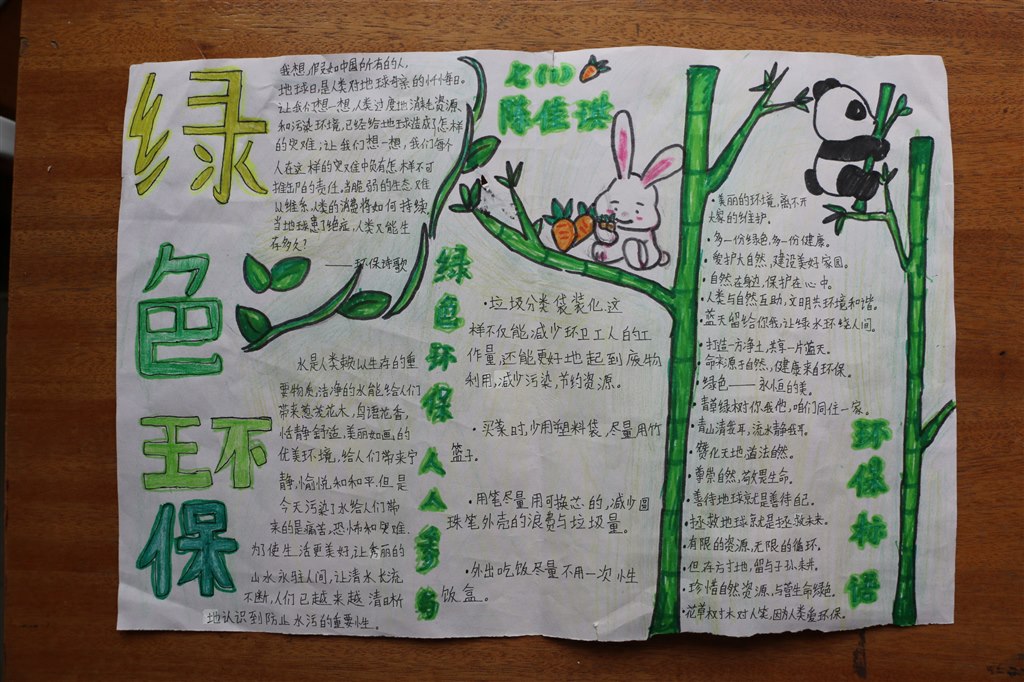 绿
色
环
保
我想,假如中国所有的人,
地球日,是人类对地球母亲的忏悔日。
让我们想一想,人类过度地消耗资源
和污染环境,已经给地球造成了怎样
的灾难;让我们想一想,我们每个
人在这样的灾难中负有怎样不可
推卸的责任。当脆弱的生态难
以维系,人类的消费将如何持续
当地球患了绝症,人类又能生
存多久?
——环保诗歌
水是人类赖以生存的重
要物质,洁净的水能给人们
带来葱茏花木,鸟语花香,
恬静舒适,美丽如画的
优美环境,给人们带来宁
静,愉悦和和平。但是
今天污染了水给人们带
来的是痛苦,恐怖和灾难.
为了使生活更美好,让秀丽的
山水永驻人间,让清水长流
不断,人们已越来越清晰
地认识到防止水污的重要性。
七(1)
陈佳琪
绿色环保人人参与
·垃圾分类袋装化,这
样不仅能减少环卫工人的工
作量,还能更好地起到废物
利用,减少污染,节约资源。
·买菜时,少用塑料袋,尽量用竹
篮子。
·用笔尽量用可换芯的,减少圆
珠笔外壳的浪费与垃圾量。
·外出吃饭尽量不用一次性
饭盒。
·美丽的环境,离不开
大家的维护。
·多一份绿色,多一份健康。
·爱护大自然,建设美好家园。
·自然在身边,保护在心中。
·人类与自然互助,文明共环境和谐。
·蓝天留给你我,让绿水环绕人间。
·打造一方净土,共享一片蓝天。
·命来源于自然,健康来自环保。
·绿色——永恒的美。
·青草绿树你我他,咱们同住一家。
·青山清我耳,流水静我耳。
·赞化天地道法自然。
·尊崇自然,敬畏生命。
·善待地球就是善待自己。
·拯救地球就是拯救未来。
·有限的资源,无限的循环。
·但存方寸地,留与子孙耕。
·珍惜自然资源,与营生命绿色。
·花草树木对人笑,因为人类爱环保。
环保标语